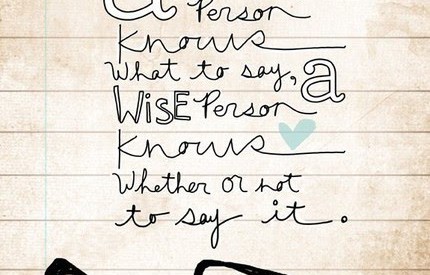 a Person
Knows
What to say, a
WiSE Person
Knows
Whether or not
to say it.